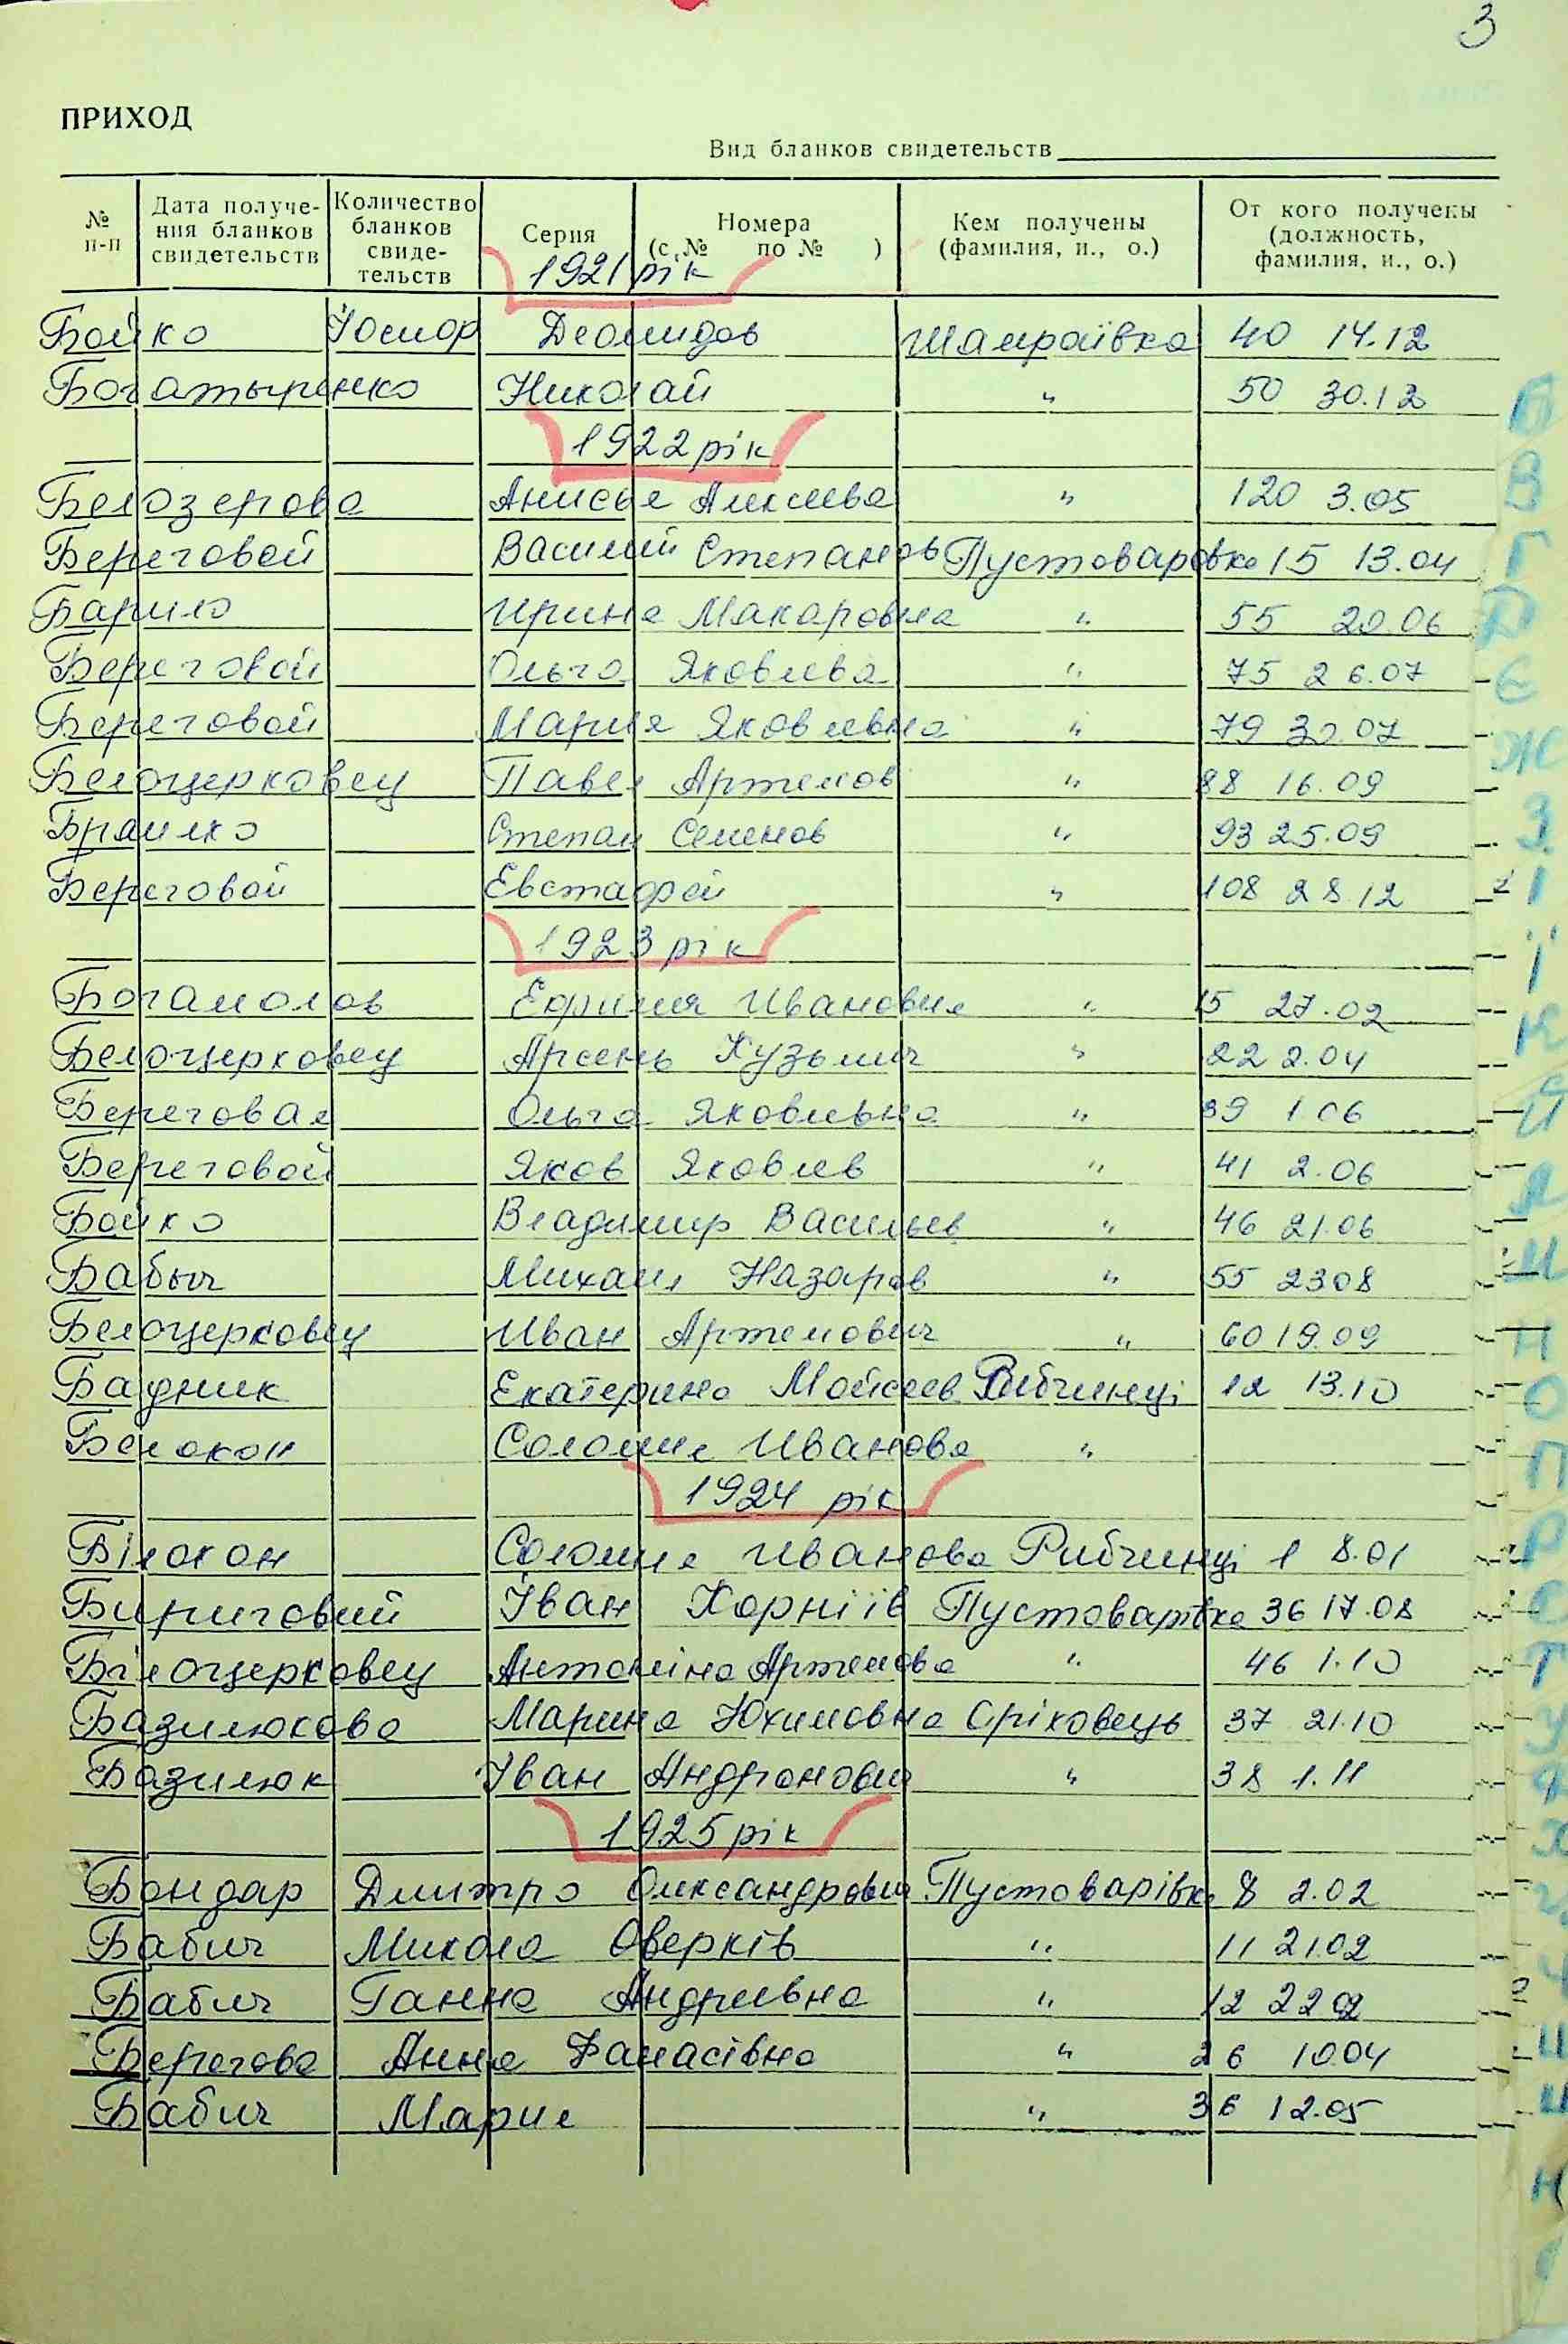 3
ПРИХОД
Вид бланков свидетельств
№ п-п | Дата получения бланков свидетельств | Количество бланков свидетельств | Серия | Номера (с № по № ) | Кем получены (фамилия, и., о.) | От кого получены (должность, фамилия, и., о.)
1921 рік
Бойко Йосиф Деомидов Шамраївка 40 14.12
Богатыренко Николай " 50 30.12
1922 рік
Белозерова Анисья Алексеева " 120 3.05
Береговой Василий Степанов Пустоваровка 15 13.04
Барило Ирина Макаровна " 55 20.06
Береговой Ольга Яковлева " 75 26.07
Береговой Мария Яковлевна " 79 30.07
Белоцерковец Павел Артемов " 88 16.09
Браилко Степан Семенов " 93 25.09
Береговой Евстафей " 108 28.12
1923 рік
Богамолов Ефимия Ивановна " 15 27.02
Белоцерковец Арсень Кузьмич " 22 2.04
Береговая Ольга Яковлевна " 39 1.06
Береговой Яков Яковлев " 41 2.06
Бойко Владимир Васильев " 46 21.06
Бабыч Михаил Назаров " 55 23 08
Белоцерковец Иван Артемович " 60 19.09
Бадник Екатерина Мойсеев Рибчинці 12 13.10
Белокон Соломия Иванова "
1924 рік
Білокон Соломия Иванова Рибчинці 1 8.01
Бириговий Іван Корніїв Пустоварівка 36 17.08
Білоцерковец Антоніна Артемова " 46 1.10
Базилюкова Марина Юхимовна Оріховець 37 21.10
Базилюк Іван Андронович " 38 1.11
1925 рік
Бондар Дмитро Олександрович Пустоварівка 8 2.02
Бабич Микола Оверків " 11 21.02
Бабич Ганна Андриевна " 12 22 02
Берегова Анна Фанасівна " 26 10.04
Бабич Мария " 36 12.05
Б
В
Г
Д
Є
Ж
З
І
Ї
К
Л
М
Н
О
П
Р
С
Т
У
Ф
Х